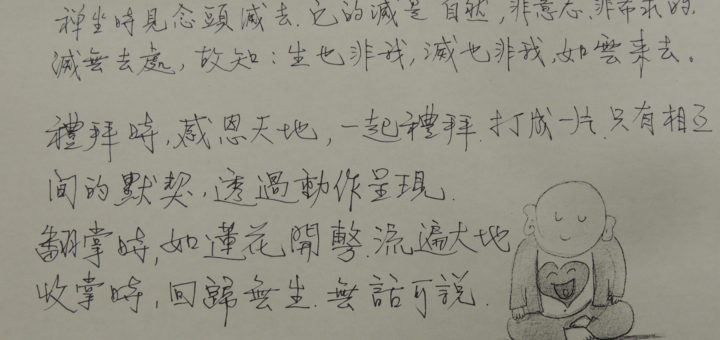 禪坐時見念頭滅去.它的滅是自然,非意志.非希求的.
滅無去處,故知:生也非我,滅也非我,如雲来去。
禮拜時,感恩天地,一起禮拜.打成一片.只有相互
間的默契.透過動作呈現.
翻掌時,如蓮花開擊.流遍大地
收掌時,回歸無生.無話可說.